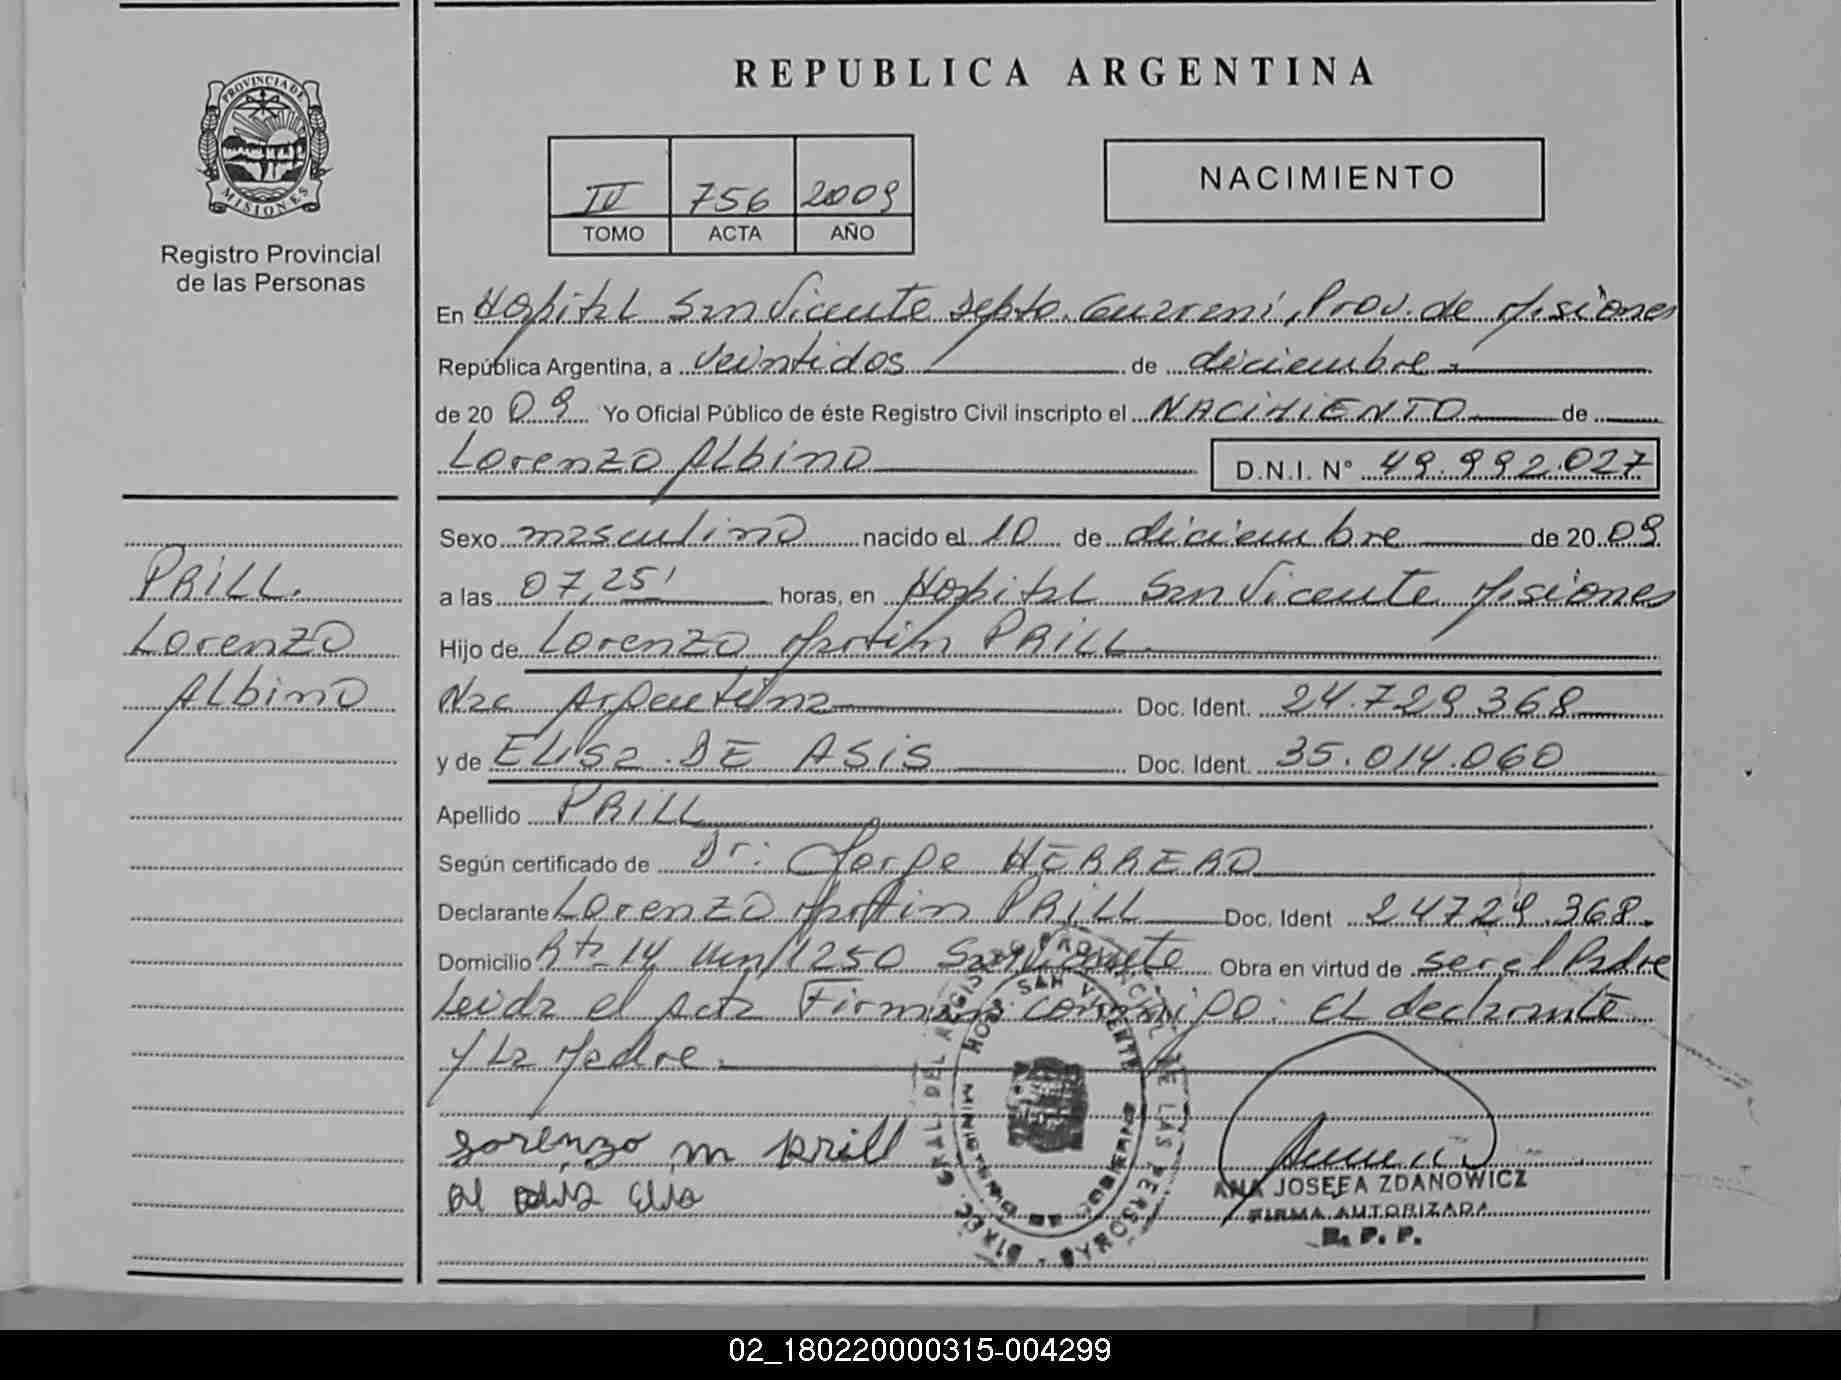 PROVINCIA DE
MISIONES
Registro Provincial
de las Personas
PRILL.
Lorenzo
Albino
REPUBLICA ARGENTINA
IV 756 2009
TOMO ACTA AÑO
NACIMIENTO
En Hospital San Vicente Depto. Guarani, Prov. de Misiones
República Argentina, a veintidos de diciembre
de 20 09 Yo Oficial Público de éste Registro Civil inscripto el NACIMIENTO de
Lorenzo Albino D.N.I. N° 49.992.027
Sexo masculino nacido el 10 de diciembre de 20 09
a las 07,25' horas, en Hospital San Vicente Misiones
Hijo de Lorenzo Martin PRILL
Nac Argentina Doc. Ident. 24.729368
y de ELisa DE ASIS Doc. Ident. 35.014.060
Apellido PRILL
Según certificado de Dr: Jorge HERRERO
Declarante Lorenzo Martin PRILL Doc. Ident 24729.368.
Domicilio Rta 14 Km/1250 San Vicente Obra en virtud de ser el Padre
Leida el Acta Firman conmigo: EL declarante
y La Madre.
Lorenzo m prill
DIREC. GRAL. DEL REGISTRO PROVINCIAL DE LAS PERSONAS
HOSP. SAN VICENTE
ANA JOSEFA ZDANOWICZ
FIRMA AUTORIZADA
R. P. P.
02_180220000315-004299